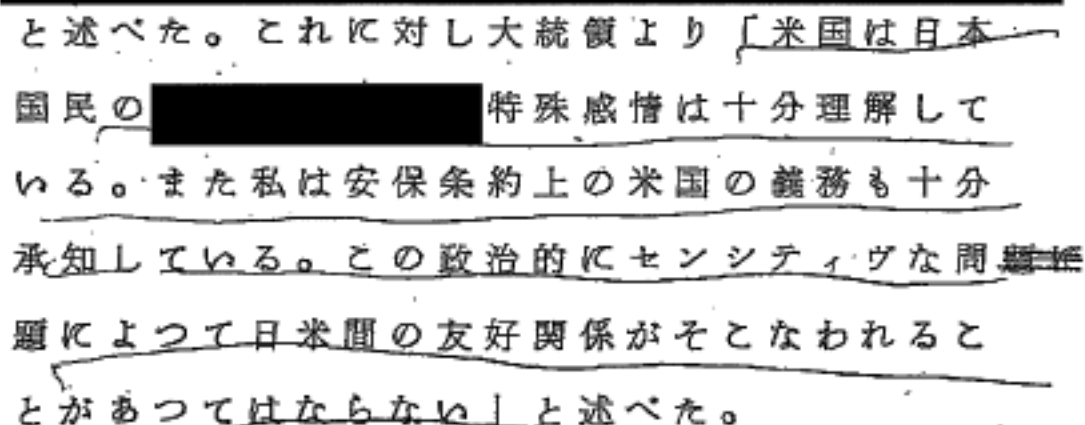 と述べた。これに対し大統領より「米国は日本
国民の特殊感情は十分理解して
いる。また私は安保条約上の米国の義務も十分
承知している。この政治的にセンシティヴな問
題によつて日米間の友好関係がそこなわれるこ
とがあつてはならない」と述べた。